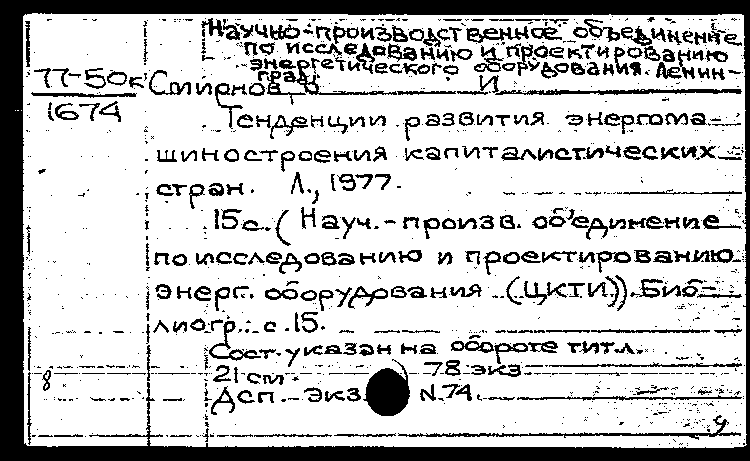 Научно-производственное объединение
по исследованию и проектированию
энергетического оборудования. Ленин-
град
77-50к
1674
Смирнов, В И
Тенденции развития энергома-
шиностроения капиталистических
стран. Л., 1977.
15с. (Науч.-произв. объединение
по исследованию и проектированию
энерг. оборудования (ЦКТИ)). Биб-
лиогр.: с.15.
Сост. указан на обороте тит.л.
21 см. 78 экз.
8
ДСП. - Экз. N 74.